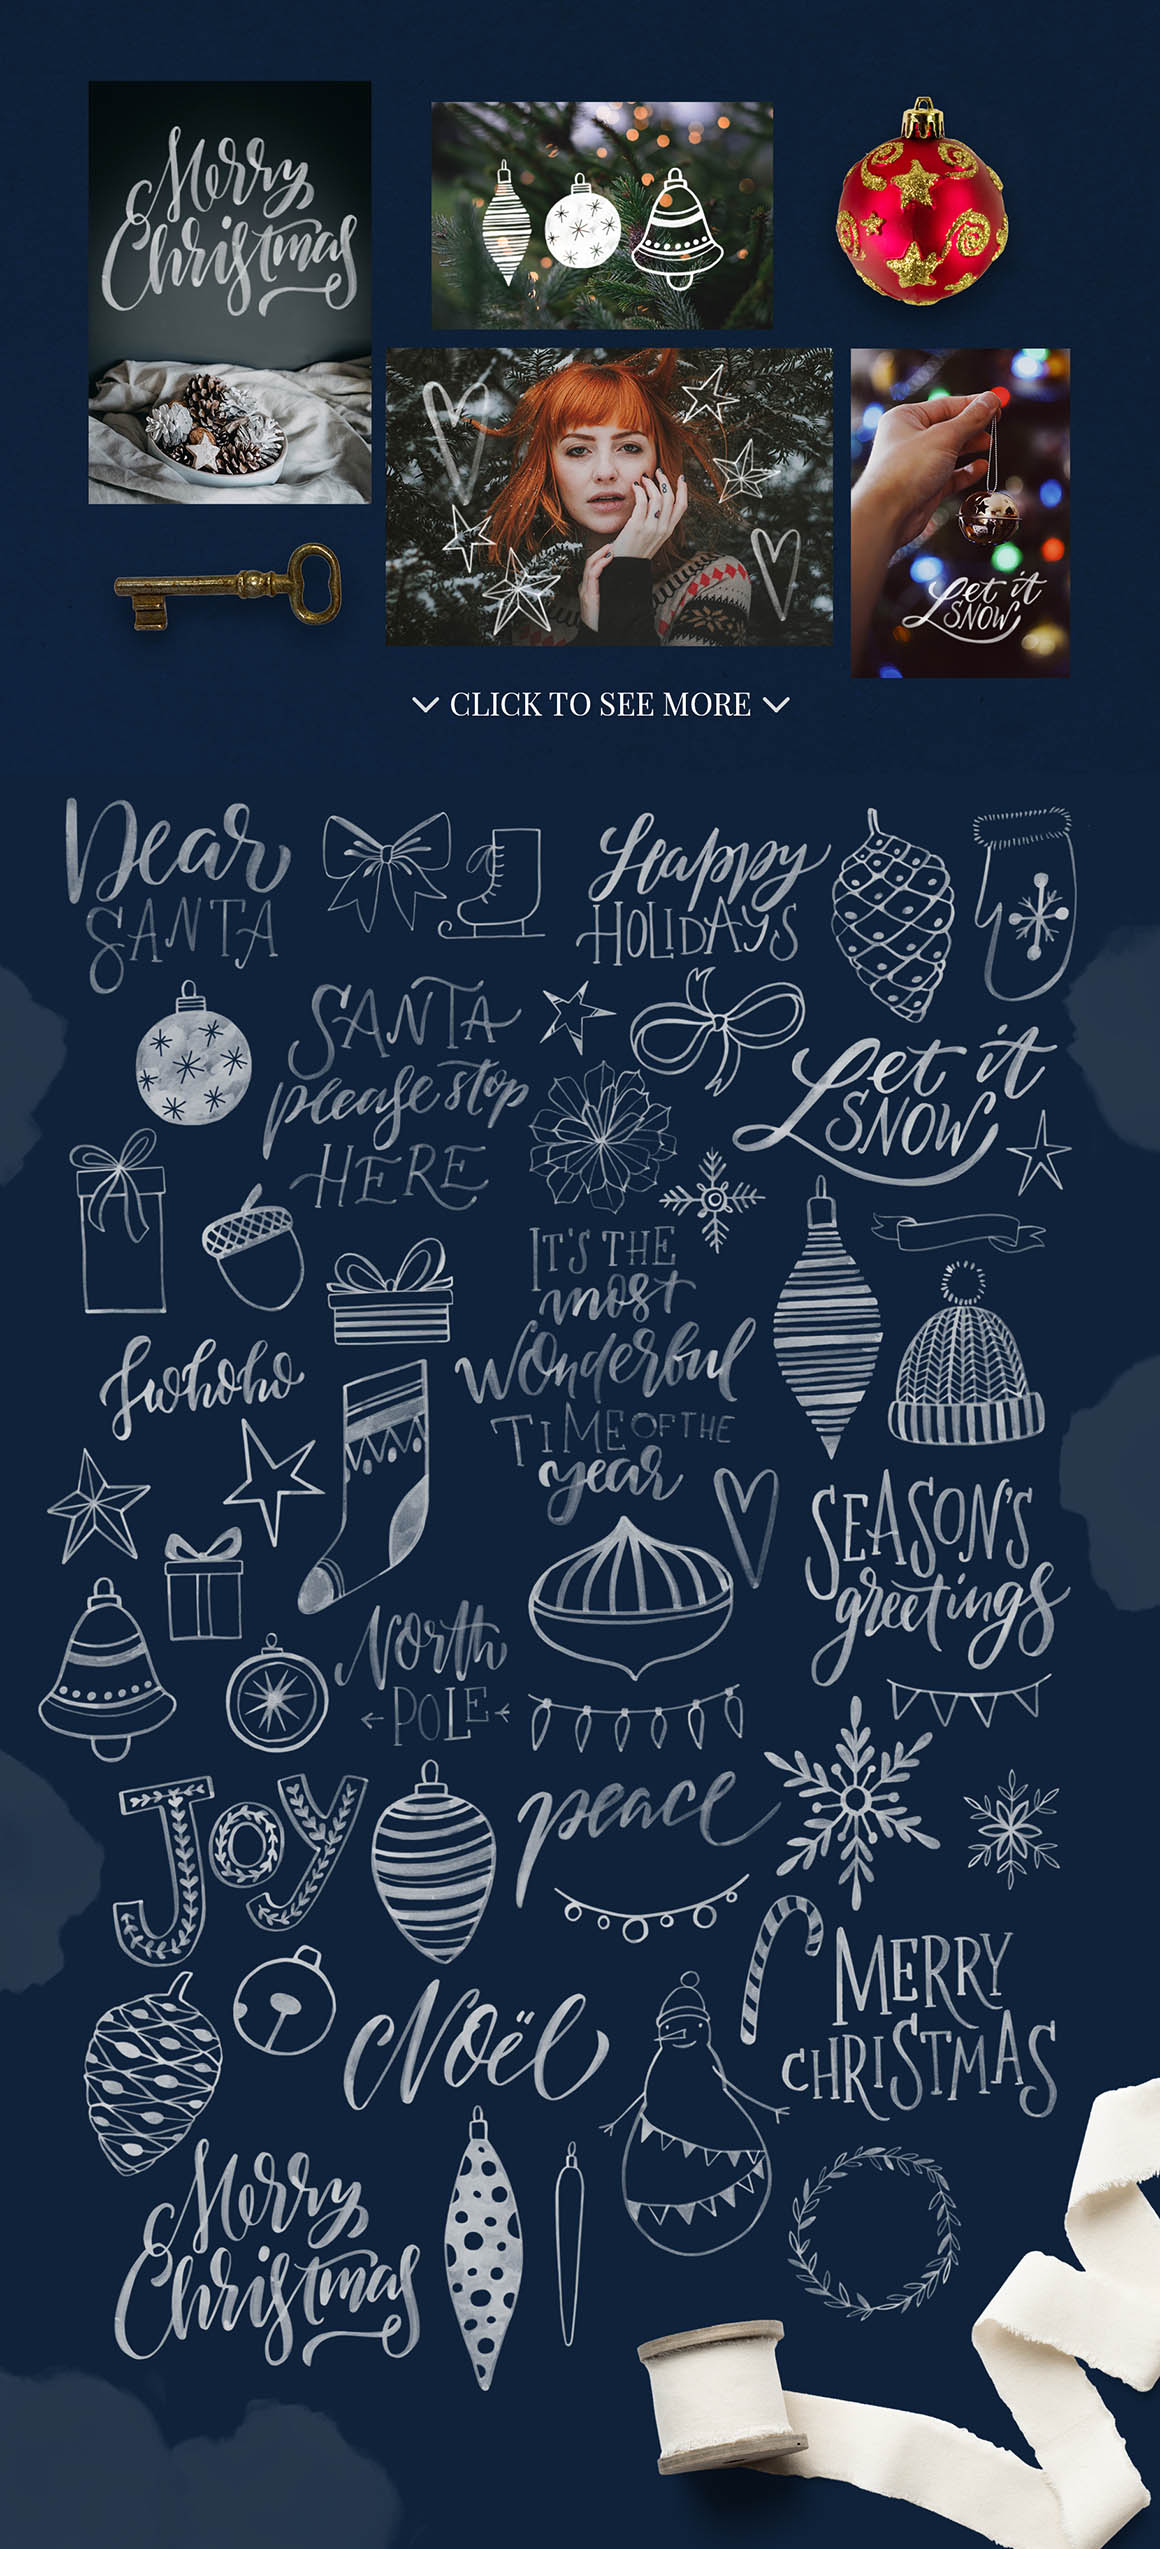 Merry
Christmas
8
Let it
SNOW
CLICK TO SEE MORE
Dear
SANTA
Happy
HOLIDAYS
SANTA
please stop
HERE
Let it
SNOW
IT'S THE
most
Wonderful
TIME OF THE
year
Hohoho
SEASON'S
greetings
North
POLE
JOY
peace
MERRY
CHRISTMAS
Noël
Merry
Christmas